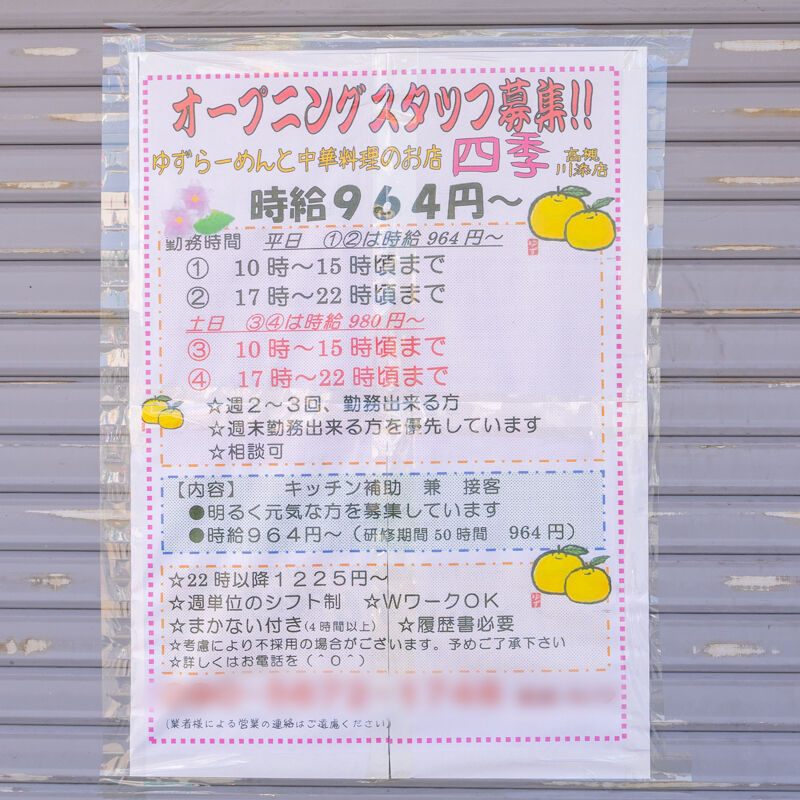 オープニングスタッフ募集!!
ゆずらーめんと中華料理のお店 四季 高槻川添店
時給964円～
勤務時間 平日 ①②は時給964円～
① 10時～15時頃まで
② 17時～22時頃まで
土日 ③④は時給980円～
③ 10時～15時頃まで
④ 17時～22時頃まで
☆週2～3回、勤務出来る方
☆週末勤務出来る方を優先しています
☆相談可
【内容】 キッチン補助 兼 接客
●明るく元気な方を募集しています
●時給964円～（研修期間50時間 964円）
☆22時以降1225円～
☆週単位のシフト制 ☆WワークOK
☆まかない付き(4時間以上) ☆履歴書必要
☆考慮により不採用の場合がございます。予めご了承下さい
☆詳しくはお電話を（＾０＾）
(業者様による営業の連絡はご遠慮ください)